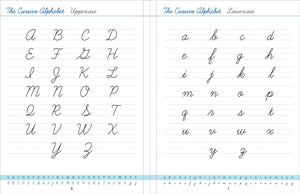 The Cursive Alphabet Uppercase
A B C D
E F G H
I J K L
M N O P
Q R S T
U V W X
Y Z
The Cursive Alphabet Lowercase
a b c d
e f g h
i j k l
m n o p
q r s t
u v w x
y z